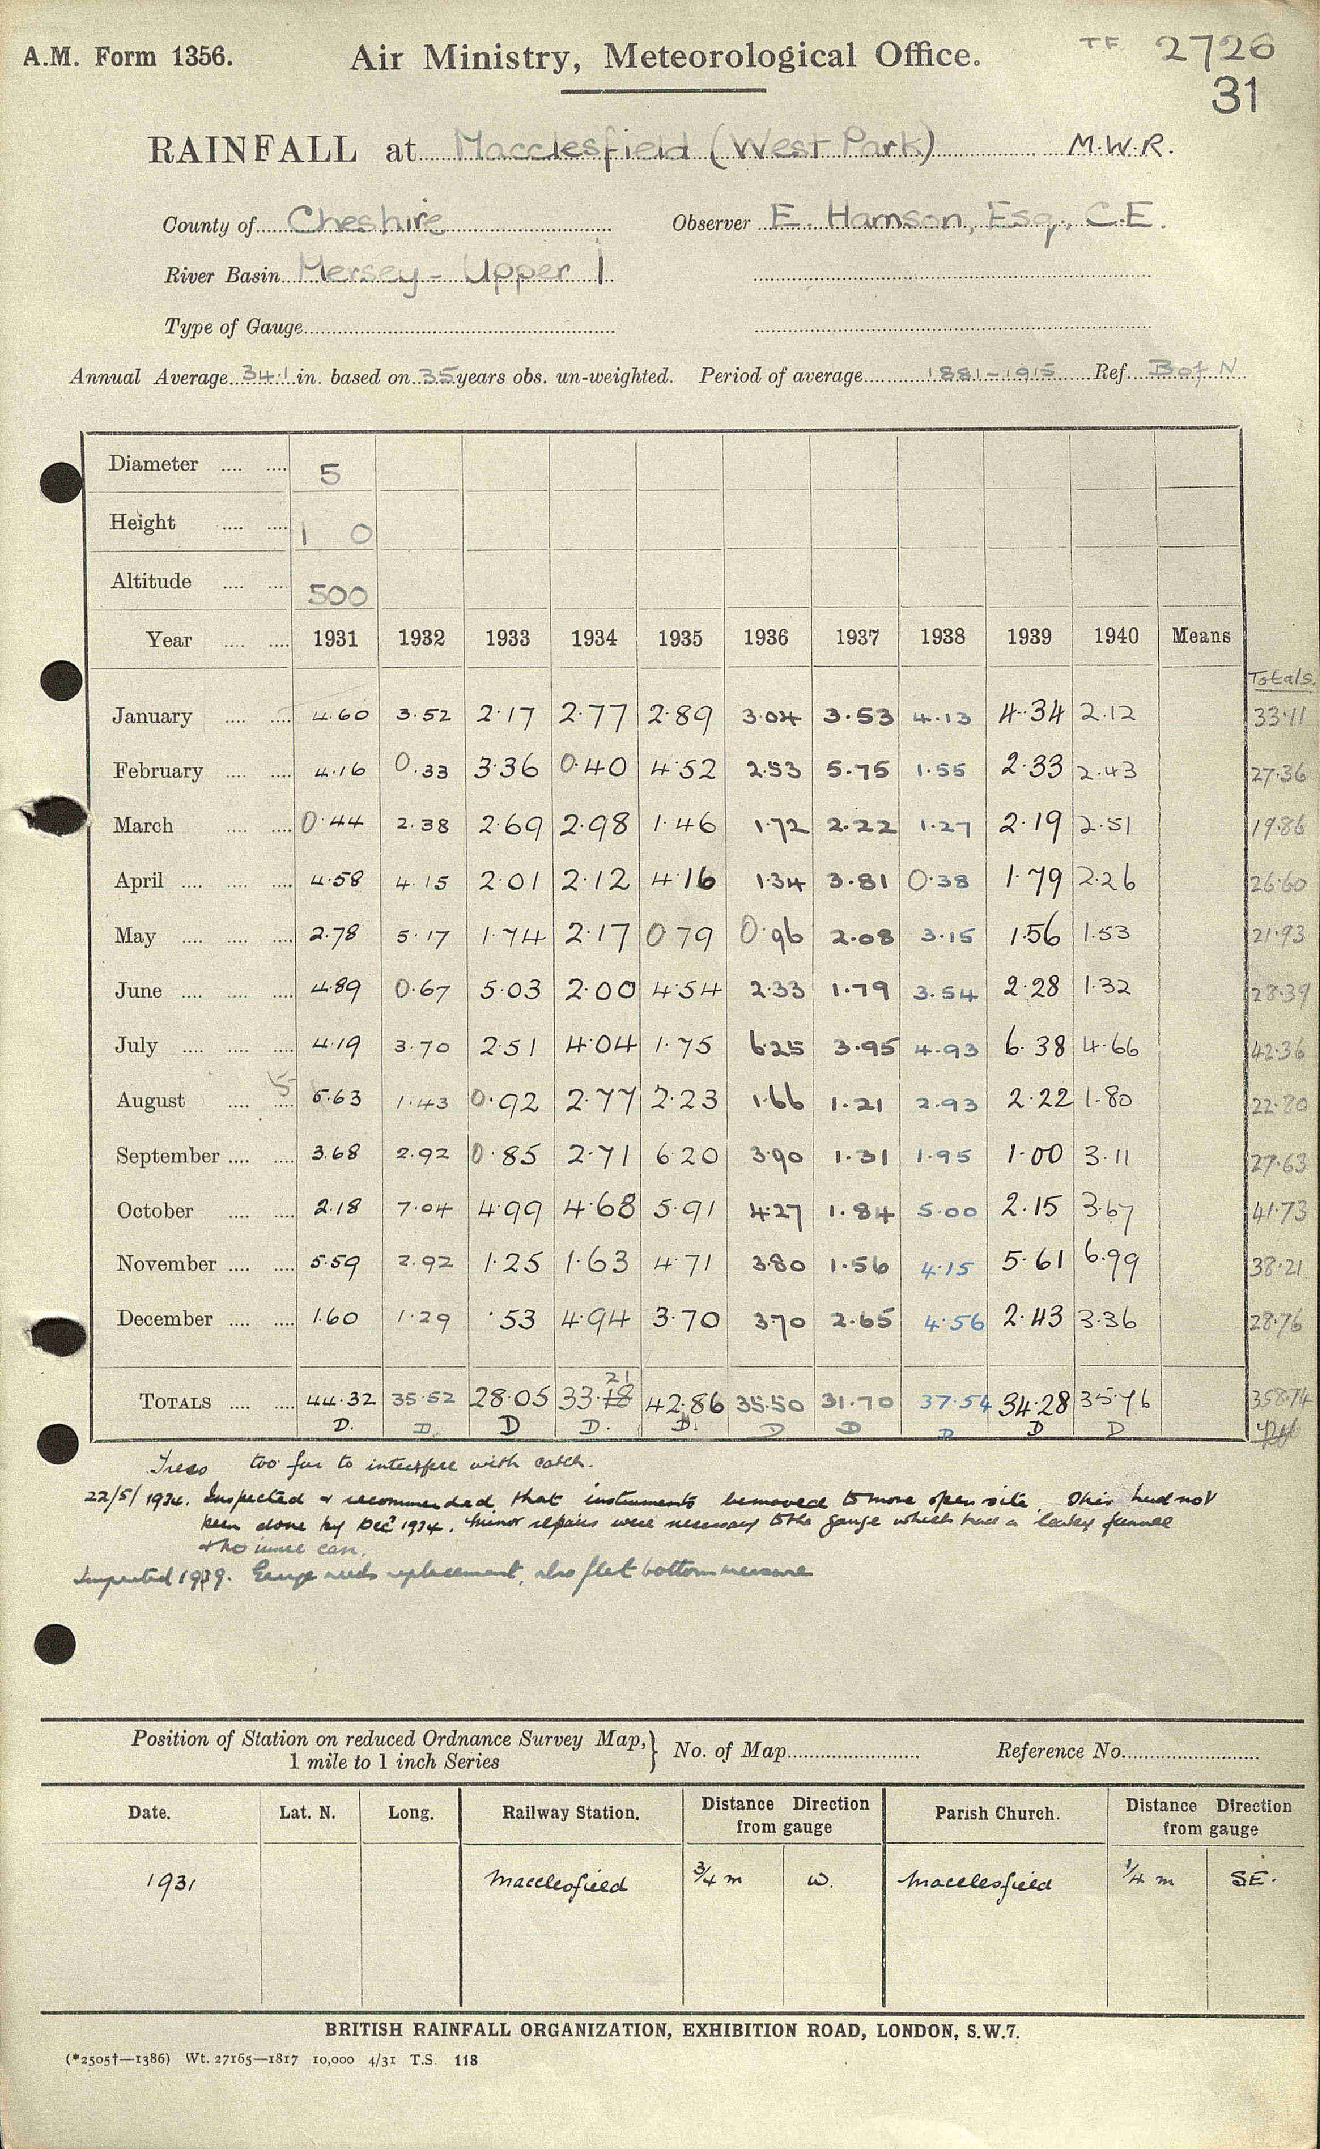 A.M. Form 1356. Air Ministry, Meteorological Office. TF 2726
31
RAINFALL at Macclesfield (West Park) M.W.R.
County of Cheshire Observer E. Harrison, Esq., C.E.
River Basin Mersey - Upper 1
Type of Gauge
Annual Average 34.1 in. based on 35 years obs. un-weighted. Period of average 1881-1915 Ref. B of N
Diameter 5
Height 1 0
Altitude 500
Year 1931 1932 1933 1934 1935 1936 1937 1938 1939 1940 Means
Totals.
January 4.60 3.52 2.17 2.77 2.89 3.04 3.53 4.13 4.34 2.12 33.11
February 4.16 0.33 3.36 0.40 4.52 2.53 5.75 1.55 2.33 2.43 27.36
March 0.44 2.38 2.69 2.98 1.46 1.72 2.22 1.27 2.19 2.51 19.86
April 4.58 4.15 2.01 2.12 4.16 1.34 3.81 0.38 1.79 2.26 26.60
May 2.78 5.17 1.74 2.17 0.79 0.96 2.08 3.15 1.56 1.53 21.93
June 4.89 0.67 5.03 2.00 4.54 2.33 1.79 3.54 2.28 1.32 28.39
July 4.19 3.70 2.51 4.04 1.75 6.25 3.95 4.93 6.38 4.66 42.36
August 5 5.63 1.43 0.92 2.77 2.23 1.66 1.21 2.93 2.22 1.80 22.80
September 3.68 2.92 0.85 2.71 6.20 3.90 1.31 1.95 1.00 3.11 27.63
October 2.18 7.04 4.99 4.68 5.91 4.27 1.84 5.00 2.15 3.67 41.73
November 5.59 2.92 1.25 1.63 4.71 3.80 1.56 4.15 5.61 6.99 38.21
December 1.60 1.29 .53 4.94 3.70 3.70 2.65 4.56 2.43 3.36 28.76
21
TOTALS 44.32 35.52 28.05 33.18 42.86 35.50 31.70 37.54 34.28 35.76 358.74
D. D. D D. D. D D D D D
Trees too far to interfere with catch.
22/5/1934. Inspected & recommended that instruments be moved to more open site. This had not
been done by Dec 1934. Minor repairs were necessary to the gauge which had a leaky funnel
& no inner can.
Inspected 1939. Gauge needs replacement, also flat bottom measure
Position of Station on reduced Ordnance Survey Map,
1 mile to 1 inch Series } No. of Map Reference No.
Date. Lat. N. Long. Railway Station. Distance Direction from gauge Parish Church. Distance Direction from gauge
1931 Macclesfield 3/4 m W. Macclesfield 1/4 m SE.
BRITISH RAINFALL ORGANIZATION, EXHIBITION ROAD, LONDON, S.W.7.
(*2505†—1386) Wt. 27165—1817 10,000 4/31 T.S. 118